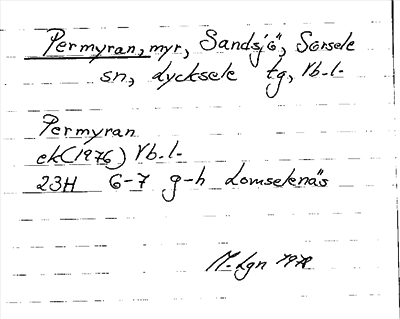 Permyran, myr, Sandsjö, Sorsele
sn, Lycksele tg, Vb.l.
Permyran
ek (1976) Vb.l.
23H 6-7 g-h Lomselenäs
M. Lgn 1978